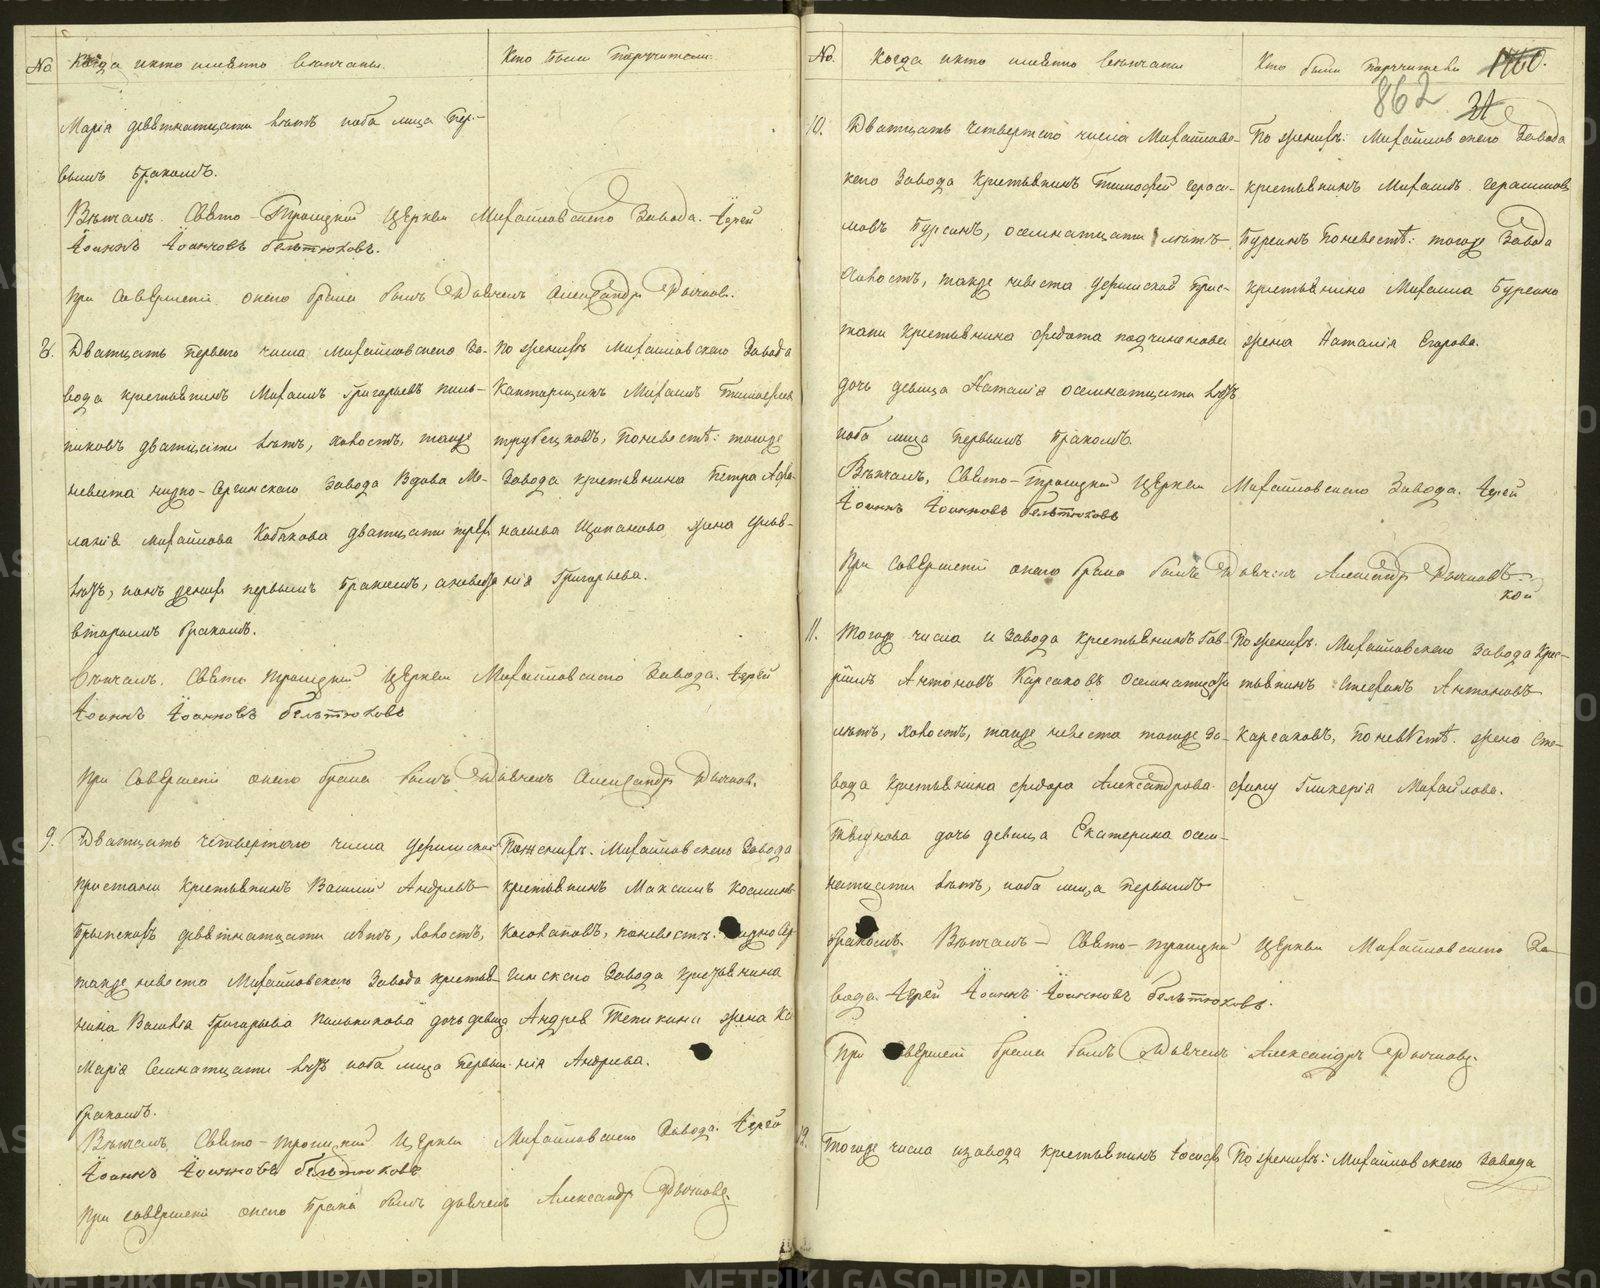 № Когда и кто имянно венчаны. Кто были Поручители.
Марiя девятнатцати летъ, оба лица пер-
вымъ бракомъ.
Венчалъ. Свято-Троицкой Церкви Михайловскаго Завода. Iерей
Iоаннъ Iоанновъ Бельтюковъ.
При Совершенiи онаго брака былъ Дьячекъ Александръ
8. Дватцать перваго числа Михайловскаго За-
вода крестьянинъ Михаилъ Григорьевъ Пиль-
никовъ дватцати летъ, холостъ, также
невеста Нижно-Сергинскаго Завода Вдова Ме-
ланiя Михайлова Кобякова дватцати трехъ
летъ, онъ жених первымъ бракомъ, а невеста
вторымъ бракомъ.
По женихе Михайловскаго Завода
Канторщикъ Михаилъ Тимофеевъ
Трубецковъ, По невесте: тогоже
Завода крестьянина Петра Афа-
насьева Щипанова жена Улья-
нiя Григорьева.
Венчалъ. Свято Троицкой Церкви Михайловскаго Завода. Iерей
Iоаннъ Iоанновъ Бельтюковъ
При Совершенiи онаго брака былъ Дьячекъ Александръ
9. Дватцать четвертаго числа Уфимской
Пристани Крестьянинъ Василий Андреевъ
девятнатцати летъ, холостъ,
также невеста Михайловскаго Завода крестья-
нина Василья Григорьева Пильникова дочь девица
Марiя Семнатцати летъ оба лица Первымъ
бракомъ.
По женихе. Михайловскаго Завода
крестьянинъ Максимъ Козминъ
Косолаповъ, по невесте. Нижно Сер-
гинскаго Завода Крестьянина
Андрея Тепикина жена Ксе-
нiя Андреева.
Венчалъ, Свято-Троицкой Церкви Михайловскаго Завода. Iерей
Iоаннъ Iоанновъ Бельтюковъ
При совершенiи онаго брака былъ дьячекъ Александръ
№ Когда и кто имянно венчаны Кто были Поручители 1760.
862
31
10. Дватцать четвертаго числа Михайловс-
каго Завода Крестьянинъ Тимофей Гераси-
мовъ Бурсинъ, осемнатцати летъ
Холостъ, также невеста Уфимской Прис-
тани Крестьянина Федота Подчиненова
дочь девица Наталiя осемнатцати летъ
оба лица Первымъ Бракомъ
По женихе: Михайловскаго Завода
крестьянинъ Михаилъ Герасимовъ
Бурсинъ По невесте: тогоже Завода
крестьянина Михаила Бурсина
жена Наталiя Егорова.
Венчалъ, Свято-Троицкой Церкви Михайловскаго Завода. Iерей
Iоаннъ Iоанновъ Бельтюковъ
При Совершенiи онаго брака былъ Дьячекъ Александръ
11. Тогоже числа и Завода Крестьянинъ Гав-
рiилъ Антоновъ Карсаковъ Осемнатцати
летъ, Холостъ, также невеста тогоже За-
вода Крестьянина Федора Александрова
дочь девица Екатерина осем-
натцати летъ, оба лица Первымъ
бракомъ. Венчалъ Свято-Троицкой Церкви Михайловскаго За-
вода. Iерей Iоаннъ Iоанновъ Бельтюковъ.
По женихе. Михайловскаго Завода Крес-
тьянинъ Стефанъ Антоновъ
Карсаковъ, По невесте. жена Сте-
фану Гликерiя Михайлова.
При Совершенiи брака былъ Дьячекъ Александръ
12. Тогоже числа и завода крестьянинъ Iосифъ По женихе: Михайловскаго Завода